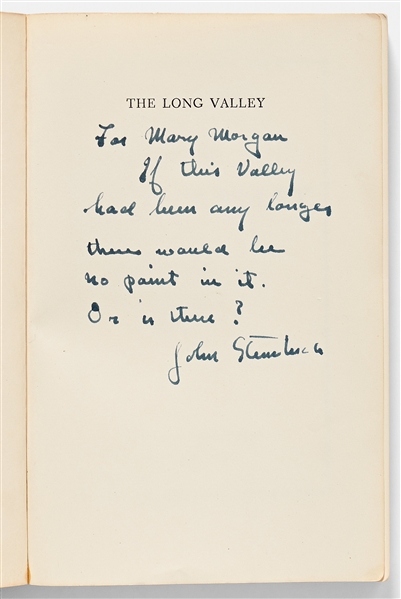 THE LONG VALLEY
For Mary Morgan
If this Valley
had been any longer
there would be
no point in it.
Or is there?
John Steinbeck